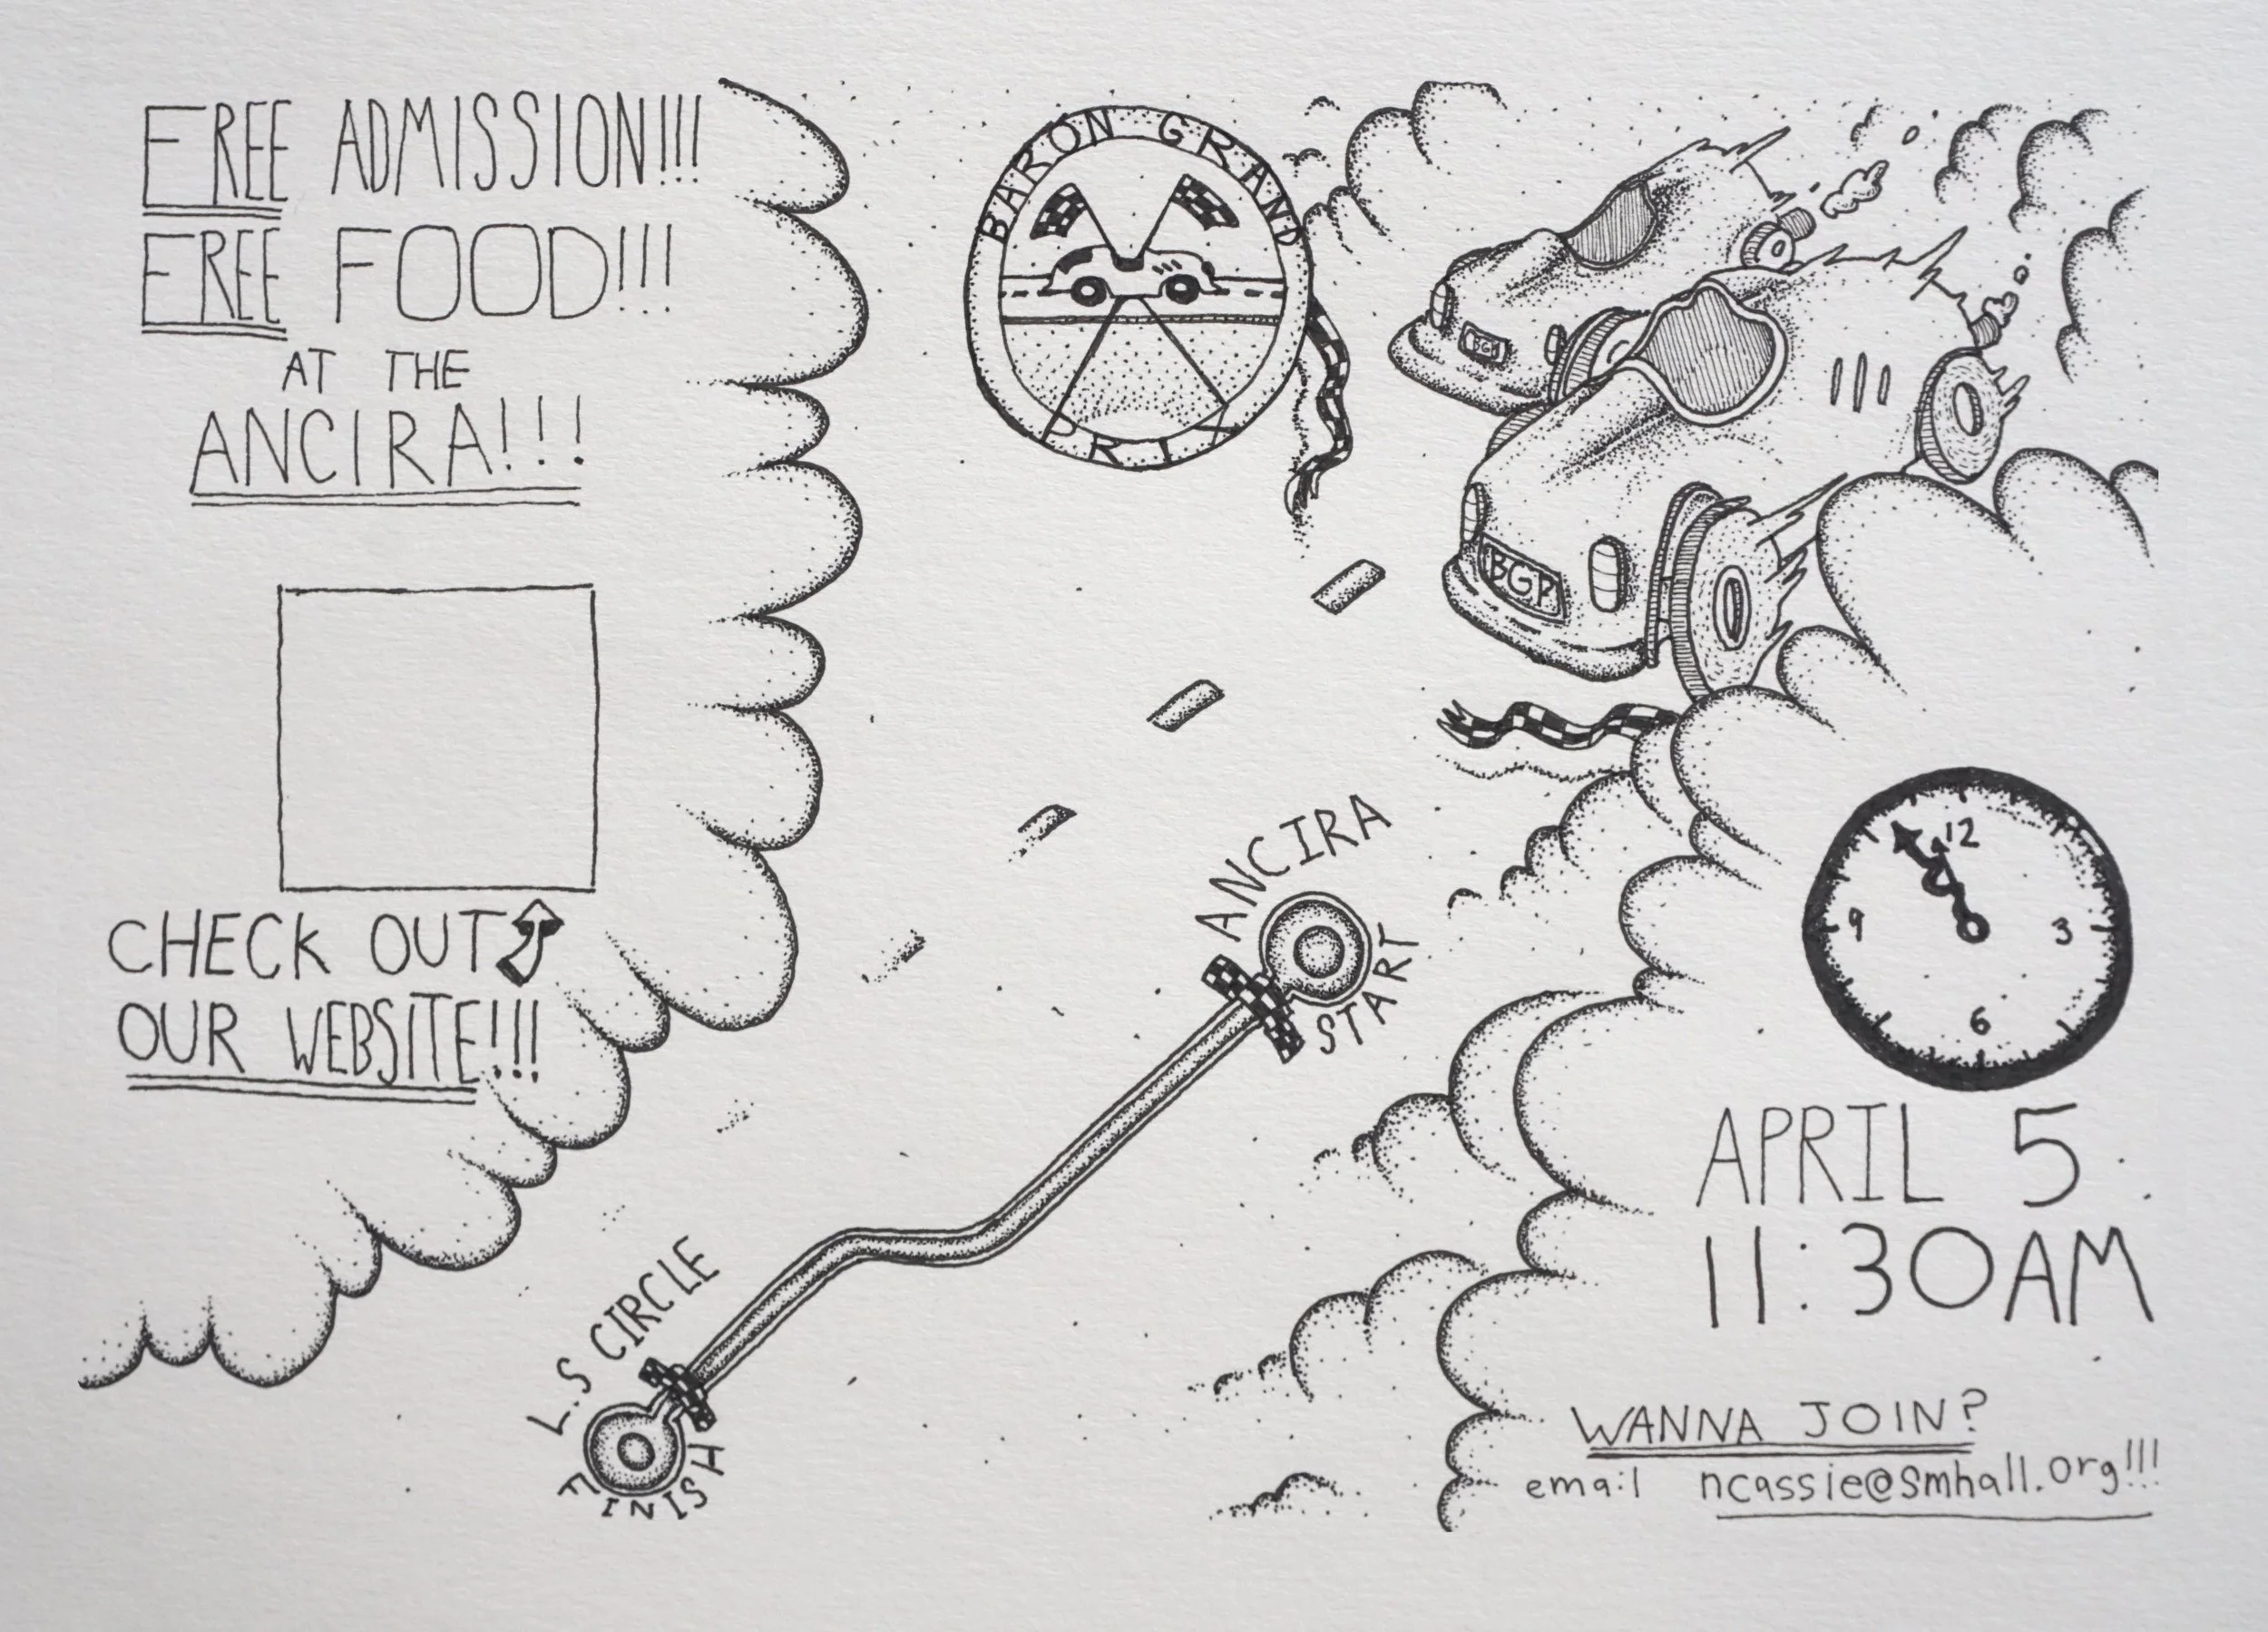 FREE ADMISSION!!!
FREE FOOD!!!
AT THE
ANCIRA!!!
CHECK OUT
OUR WEBSITE!!!
BARON GRAND
PRIX
BGP
BGP
ANCIRA
START
L.S CIRCLE
FINISH
12
3
6
9
APRIL 5
11:30AM
WANNA JOIN?
email ncassie@smhall.org!!!